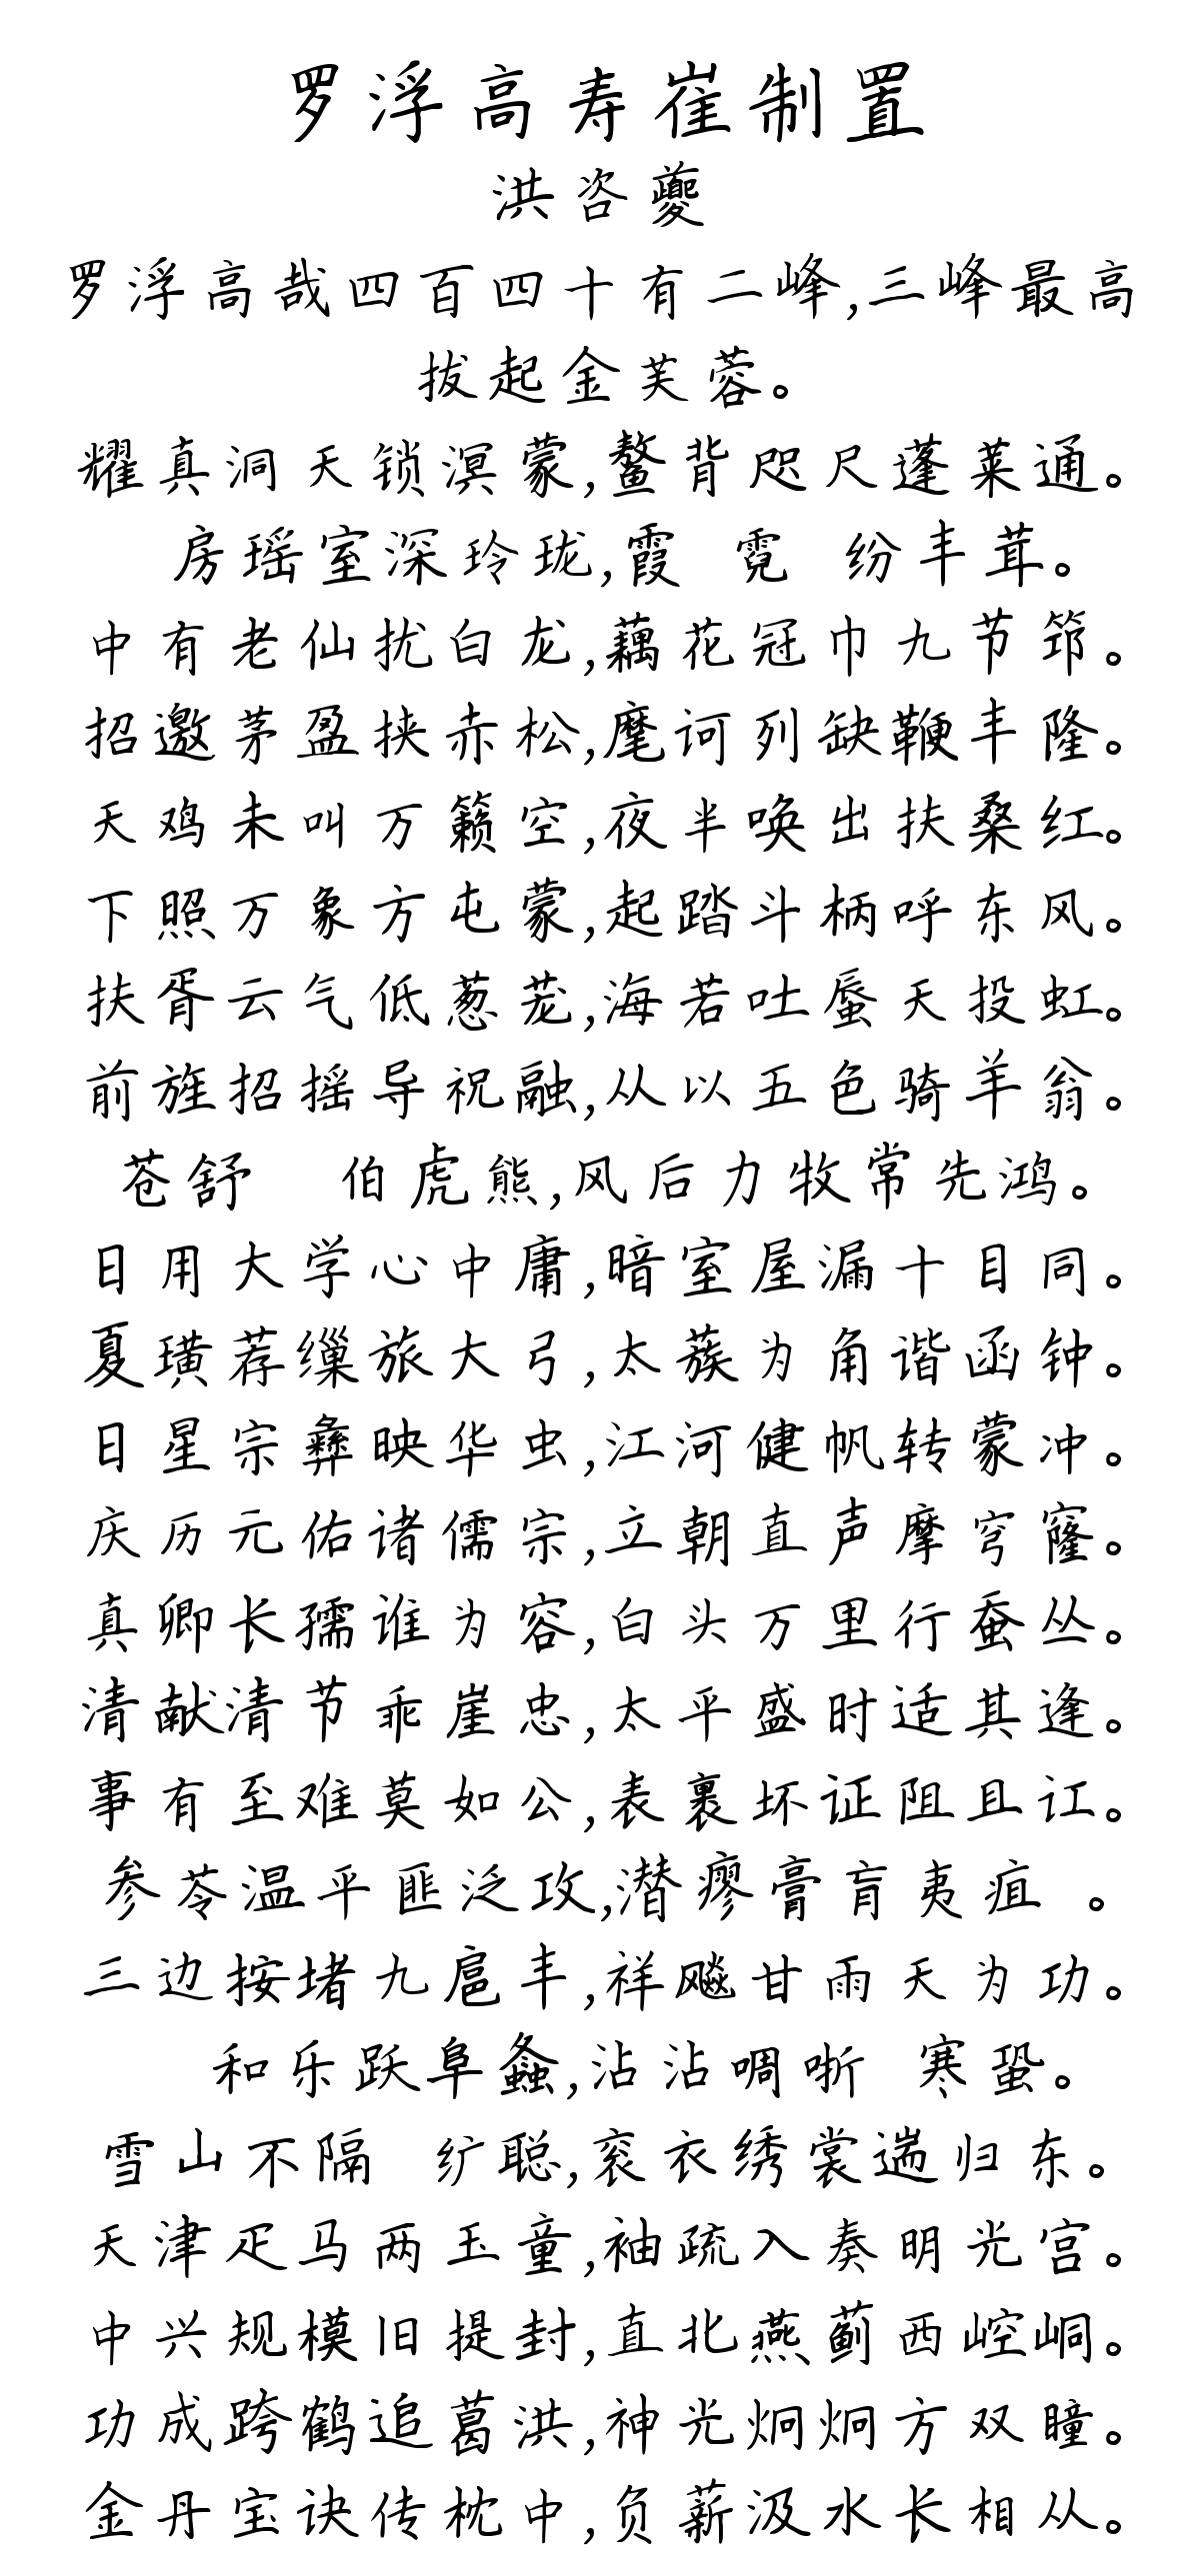 罗浮高寿崔制置
洪咨夔
罗浮高哉四百四十有二峰,三峰最高
拔起金芙蓉。
耀真洞天锁溟蒙,鳌背咫尺蓬莱通。
房瑶室深玲珑,霞 霓 纷丰茸。
中有老仙扰白龙,藕花冠巾九节筇。
招邀茅盈挟赤松,麾诃列缺鞭丰隆。
天鸡未叫万籁空,夜半唤出扶桑红。
下照万象方屯蒙,起踏斗柄呼东风。
扶胥云气低葱茏,海若吐蜃天投虹。
前旌招摇导祝融,从以五色骑羊翁。
苍舒 伯虎熊,风后力牧常先鸿。
日用大学心中庸,暗室屋漏十目同。
夏璜荐缫旅大弓,太蔟为角谐函钟。
日星宗彝映华虫,江河健帆转蒙冲。
庆历元佑诸儒宗,立朝直声摩穹窿。
真卿长孺谁为容,白头万里行蚕丛。
清献清节乖崖忠,太平盛时适其逢。
事有至难莫如公,表里坏证阻且讧。
参苓温平匪泛攻,潜瘳膏肓夷疽 。
三边按堵九扈丰,祥飚甘雨天为功。
和乐跃阜螽,沾沾啁哳 寒蛩。
雪山不隔 纩聪,衮衣绣裳遄归东。
天津疋马两玉童,袖疏入奏明光宫。
中兴规模旧提封,直北燕蓟西崆峒。
功成跨鹤追葛洪,神光炯炯方双瞳。
金丹宝诀传枕中,负薪汲水长相从。